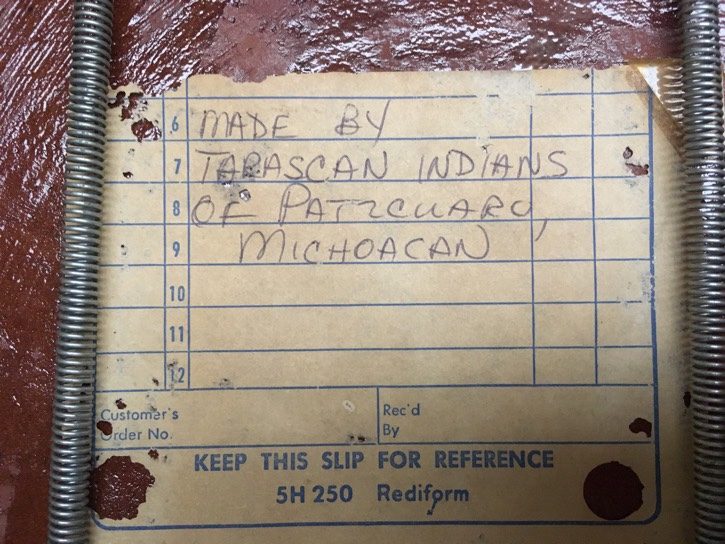 6 MADE BY
7 TARASCAN INDIANS
8 OF PATZCUARO,
9 MICHOACAN
10
11
12
Customer's
Order No.
Rec'd
By
KEEP THIS SLIP FOR REFERENCE
5H 250 Rediform